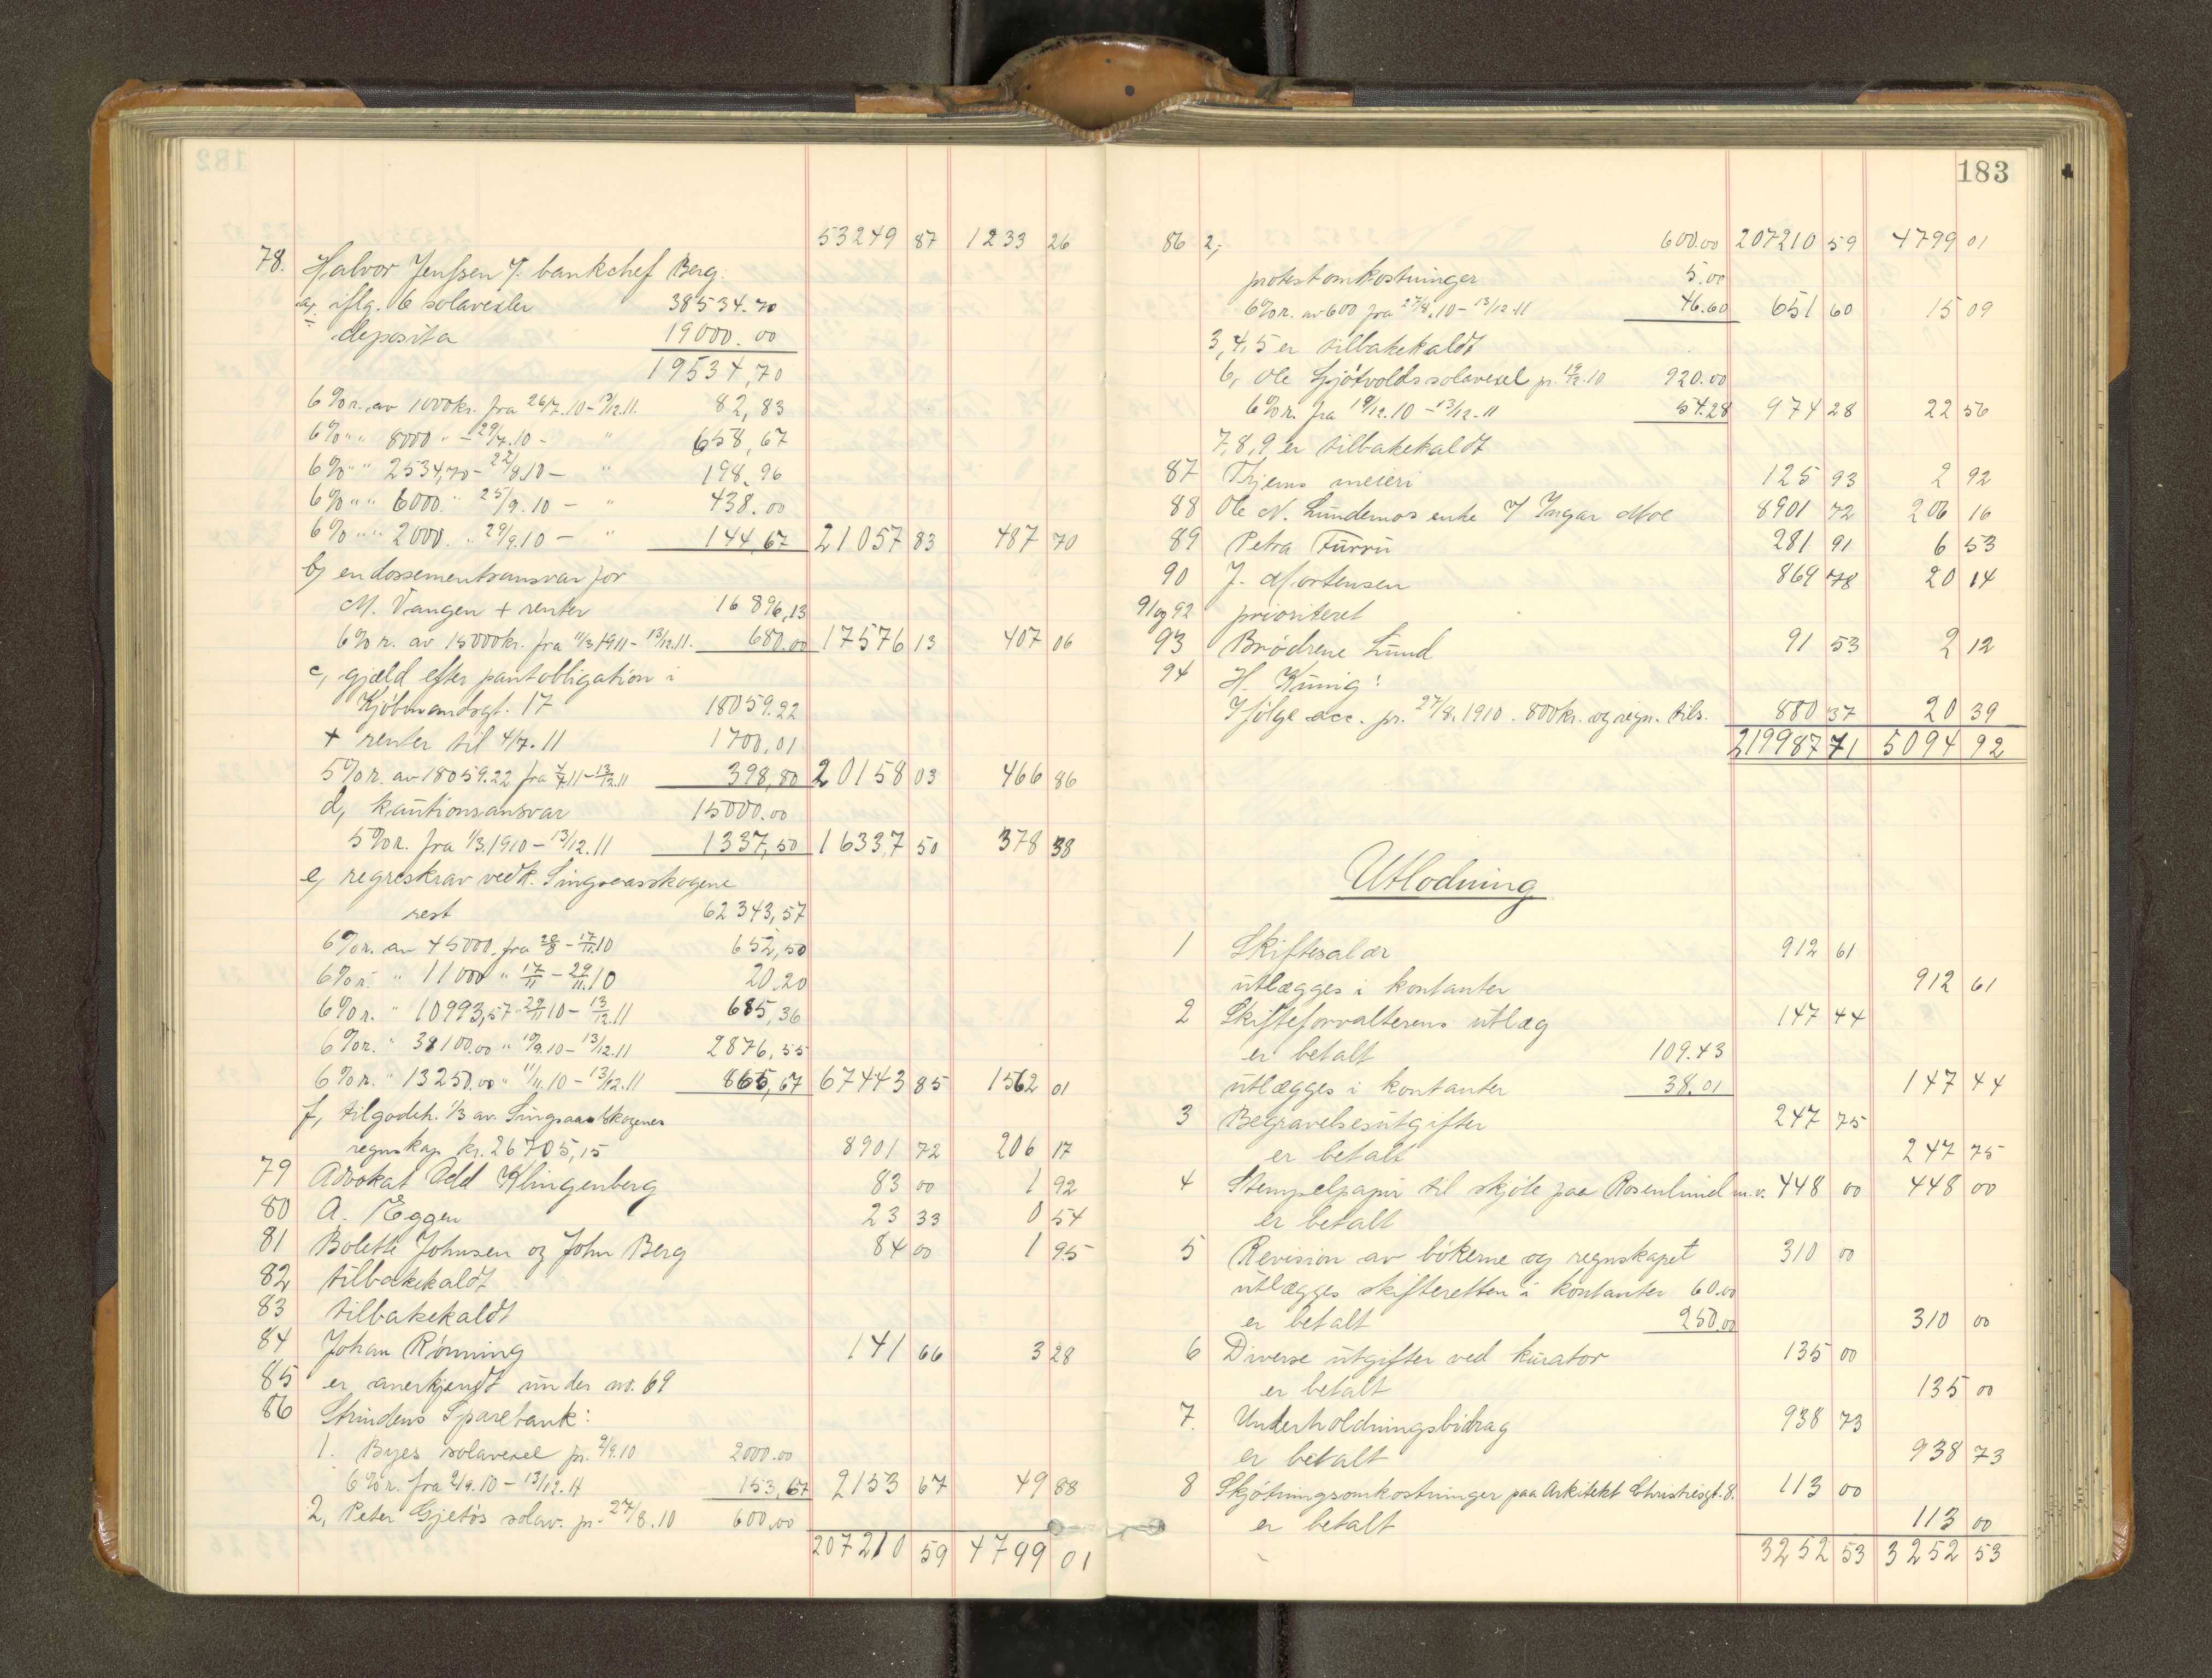 53249 87 1233 26
78. Halvor Jenssen v. bankchef Berg:
a, iflg. 6 solavexler 38534.70
deposita 19000.00
19534,70
6% r. av 1000 kr. fra 26/7.10 - 13/12.11. 82,83
6% " " 8000 " - 29/7.10 - " 658,67
6% " " 2534,70 - 22/8.10 - " 198.96
6% " " 6000 " 25/9.10 - " 438.00
6% " " 2000. " 29/9.10 - " 144,67 21057 83 487 70
b, endossementsansvar for
M. Vangen + renter 16896,13
6% r. av 15000 kr. fra 11/3 1911 - 13/12.11. 680.00 17576 13 407 06
c, gjæld efter pantobligation i
Kjøbmandsgt. 17 18059.22
+ renter til 4/7.11 1700,01
5% r. av 18059.22 fra 4/7.11 - 13/12.11 398,80 20158 03 466 86
d, kautionsansvar 15000.00
5% r. fra 1/3.1910 - 13/12.11 1337,50 16337 50 378 38
e, regreskrav vedk. Singsaasskogene
rest 62343,57
6% r. av 45000. fra 20/8 - 17/11.10 652,50
6% r. " 11000 " 17/11 - 29/11.10 20.20
6% r. " 10993,57 " 29/11 10 - 13/12.11 685,36
6% r. " 38100.00 " 10/9.10 - 13/12.11 2876,55
6% r. " 13250.00 " 11/11.10 - 13/12.11 865,67 67443 85 1562 01
f, tilgodeh. 1/3 av. Singsaasskogenes
regnskap kr. 26705,15 8901 72 206 17
79 Advokat Odd Klingenberg 83 00 1 92
80 A. Eggen 23 33 0 54
81 Bolette Johnsen og John Berg 84 00 1 95
82 tilbakekaldt
83 tilbakekaldt
84 Johan Rønning 141 66 3 28
85 er anerkjendt under no. 69
86 Strindens Sparebank:
1. Byes solavexel pr. 2/9.10 2000.00
6% r. fra 2/9.10 - 13/12.11 153,67 2153 67 49 88
2, Peter Gjetøs solav. pr. 27/8.10 600.00
207210 59 4799 01
183
86 2, 600.00 207210 59 4799 01
protestomkostninger 5.00
6% r. av 600 fra 27/8.10 - 13/12.11 46.60 651 60 15 09
3, 4, 5 er tilbakekaldt
6, Ole Gjøtvolds solavexel pr. 19/12.10 920.00
6% r. fra 19/12.10 - 13/12.11 54.28 974 28 22 56
7, 8, 9 er tilbakekaldt
87 Thjems meieri 125 93 2 92
88 Ole N. Lundemos enke v/ Ingar Moe 8901 72 206 16
89 Petra Furru 281 91 6 53
90 J. Mortensen 869 78 20 14
91 og 92 prioritert
93 Brødrene Lund 91 53 2 12
94 H. Künig:
Ifølge acc. pr. 27/8.1910. 800 kr. og regn. tils. 880 37 20 39
219987 71 5094 92
Utlodning
1 Skiftesalær 912 61
utlægges i kontanter 912 61
2 Skifteforvalterens utlæg 147 44
er betalt 109.43
utlægges i kontanter 38.01 147 44
3 Begravelsesutgifter 247 75
er betalt 247 75
4 Stempelpapir til skjøte paa Rosenlund m.v. 448 00 448 00
er betalt
5 Revision av bøkerne og regnskapet 310 00
utlægges skifteretten i kontanter 60.00
er betalt 250.00 310 00
6 Diverse utgifter ved kurator 135 00
er betalt 135 00
7. Underholdningsbidrag 938 73
er betalt 938 73
8 Skjøtningsomkostninger paa Arkitekt Christiesgt. 8. 113 00
er betalt 113 00
3252 53 3252 53